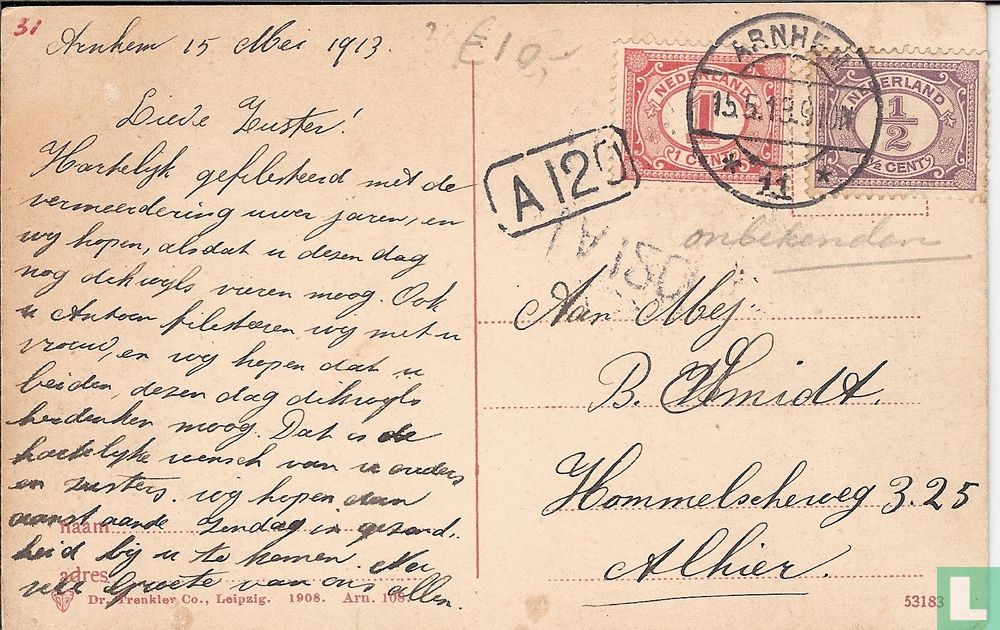 31
Arnhem 15 Mei 1913.
€10,-
Lieve Zuster!
Hartelijk gefilesteerd met de
vermeerdering uwer jaren, en
wij hopen, alsdat u dezen dag
nog dikwijls vieren moog. Ook
u Antoon filesteren wij met u
vrouw, en wij hopen dat u
beiden, dezen dag dikwijls
herdenken moog. Dat is de
hartelijke wensch van u ouders
en zusters. wij hopen dan
aanstaande Zondag in gezond-
heid bij u te komen.
Groete van ons allen.
naam
adres
Dr. Trenkler Co., Leipzig. 1908. Arn. 108
53183
NEDERLAND
1
1 CENT
NEDERLAND
1/2
½ CENT
ARNHEM
15.5.13.9
11
A 129
A 150
onbekenden
Aan Mej.
B. Smidt.
Hommelscheweg 325
Alhier.
L